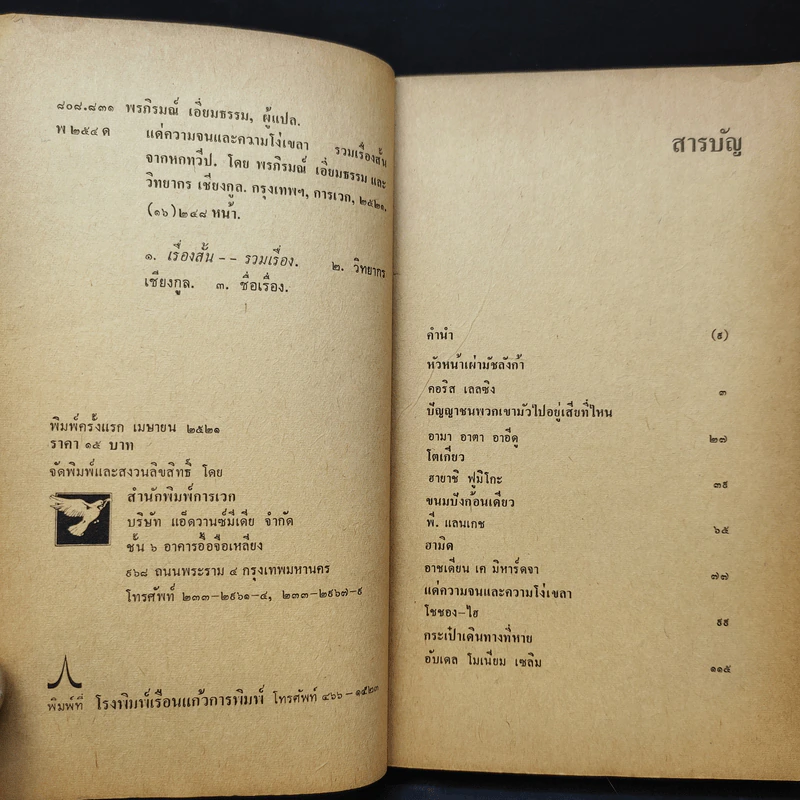 ๘๐๘.๘๓๑ พรภิรมณ์ เอี่ยมธรรม, ผู้แปล.
พ ๒๕๔ ด แด่ความจนและความโง่เขลา รวมเรื่องสั้น
จากหกทวีป. โดย พรภิรมณ์ เอี่ยมธรรม และ
วิทยากร เชียงกูล. กรุงเทพฯ, การเวก, ๒๕๒๑.
(๑๖) ๒๔๘ หน้า.
๑. เรื่องสั้น -- รวมเรื่อง. ๒. วิทยากร
เชียงกูล. ๓. ชื่อเรื่อง.
พิมพ์ครั้งแรก เมษายน ๒๕๒๑
ราคา ๑๕ บาท
จัดพิมพ์และสงวนลิขสิทธิ์ โดย
สำนักพิมพ์การเวก
บริษัท แอ็ดวานซ์มีเดีย จำกัด
ชั้น ๖ อาคารอื้อจือเหลียง
๙๖๘ ถนนพระราม ๔ กรุงเทพมหานคร
โทรศัพท์ ๒๓๓-๒๙๖๑-๔, ๒๓๓-๒๙๖๗-๙
พิมพ์ที่ โรงพิมพ์เรือนแก้วการพิมพ์ โทรศัพท์ ๔๖๖-๑๕๒๓
สารบัญ
คำนำ (๙)
หัวหน้าเผ่ามัชลังก้า
ดอริส เลสซิง ๓
ปัญญาชนพวกเขามัวไปอยู่เสียที่ไหน
อามา อาตา อาอีดู ๒๗
โตเกียว
ฮายาชิ ฟูมิโกะ ๓๙
ขนมปังก้อนเดียว
พี. แลนเกช ๖๕
ฮามิด
อาชเดียน เค มิหาร์ดจา ๗๗
แด่ความจนและความโง่เขลา
โชชอง-ไฮ ๙๙
กระเป๋าเดินทางที่หาย
อับเดล โมเนียม เซลิม ๑๑๕